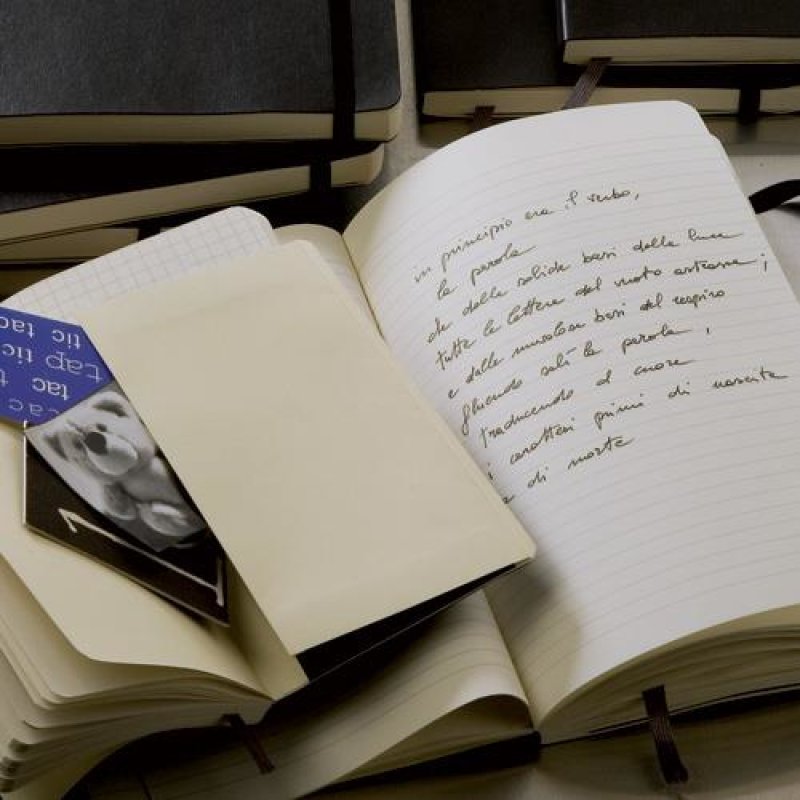 in principio era il verbo,
la parola
che dalle solide basi della luce
tutte le lettere del vuoto astraeva;
e dalle nuvolose basi del respiro
fluendo salì la parola,
traducendo al cuore
i caratteri primi di nascita
e di morte
tic tac
tap tic
tac
1